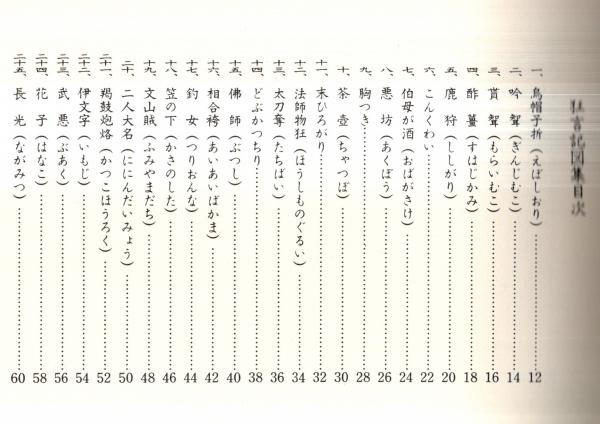 狂言記図集目次
一、烏帽子折（えぼしおり）…………12
二、吟聟（ぎんじむこ）…………14
三、貰聟（もらいむこ）…………16
四、酢薑（すはじかみ）…………18
五、鹿狩（ししがり）…………20
六、こんくわい…………22
七、伯母が酒（おばがさけ）…………24
八、悪坊（あくぼう）…………26
九、胸つき…………28
十、茶壺（ちゃつぼ）…………30
十一、末ひろがり…………32
十二、法師物狂（ほうしものぐるい）…………34
十三、太刀奪（たちばい）…………36
十四、どぶかつちり…………38
十五、佛師（ぶつし）…………40
十六、相合袴（あいあいばかま）…………42
十七、釣女（つりおんな）…………44
十八、笠の下（かさのした）…………46
十九、文山賊（ふみやまだち）…………48
二十、二人大名（ににんだいみょう）…………50
二十一、羯鼓炮烙（かつこほうろく）…………52
二十二、伊文字（いもじ）…………54
二十三、武悪（ぶあく）…………56
二十四、花子（はなこ）…………58
二十五、長光（ながみつ）…………60